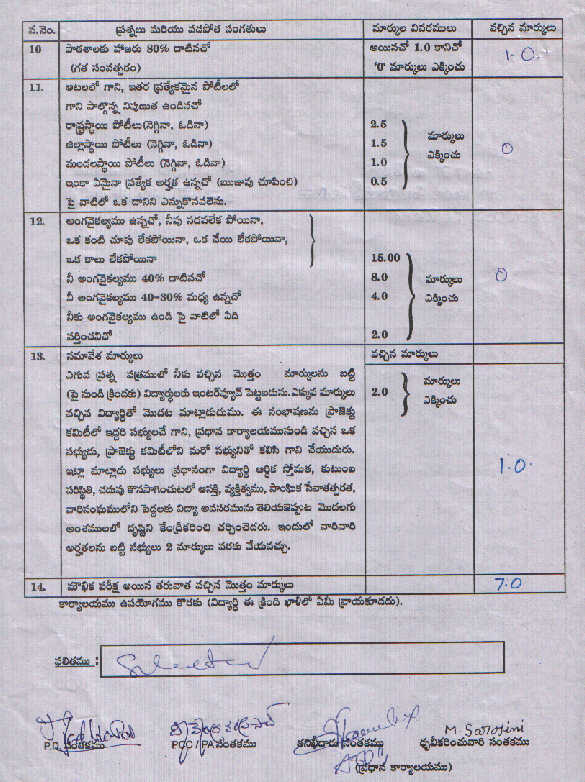 వ.నెం. ప్రశ్నలు మరియు పడపోత పంగతులు మార్కుల వివరములు వచ్చిన మార్కులు
10 పాఠశాలకు హాజరు 80% దాటినచో అయినచో 1.0 కానిచో 1.0
(గత సంవత్సరం) '0' మార్కులు ఎక్కించు
11. ఆటలలో గాని, ఇతర ప్రత్యేకమైన పోటీలలో
గాని పాల్గొన్న నిపుణుత ఉండినచో
రాష్ట్రస్థాయి పోటీలు (నెగ్గినా, ఓడినా) 2.5 మార్కులు
జిల్లాస్థాయి పోటీలు (నెగ్గినా, ఓడినా) 1.5 ఎక్కించు 0
మండలస్థాయి పోటీలు (నెగ్గినా, ఓడినా) 1.0
ఇంకా ఏమైనా ప్రత్యేక అర్హత ఉన్నచో (ఋజువు చూపించి) 0.5
పై వాటిలో ఒక దానిని ఎన్నుకొనవలెను.
12. అంగవైకల్యము ఉన్నచో, నీవు నడవలేక పోయినా,
ఒక కంటి చూపు లేకపోయినా, ఒక చేయి లేకపోయినా,
ఒక కాలు లేకపోయినా 15.00
నీ అంగవైకల్యము 40% దాటినచో 8.0 మార్కులు 0
నీ అంగవైకల్యము 40-30% మధ్య ఉన్నచో 4.0 ఎక్కించు
నీకు అంగవైకల్యము ఉండి పై వాటిలో ఏది
వర్తించనిచో 2.0
13. సమావేశ మార్కులు వచ్చిన మార్కులు
ఎగువ ప్రశ్న పత్రములో నీకు వచ్చిన మొత్తం మార్కులను బట్టి మార్కులు
(పై నుండి క్రిందకు) విద్యార్థులకు ఇంటర్వ్యూవ్ పెట్టబడును. ఎక్కువ మార్కులు 2.0 ఎక్కించు
వచ్చిన విద్యార్థితో మొదట మాట్లాడుదుము. ఈ సంభాషణను ప్రాజెక్టు
కమిటీలో ఇద్దరి సభ్యులచే గాని, ప్రధాన కార్యాలయమునుండి వచ్చిన ఒక
సభ్యుడు, ప్రాజెక్టు కమిటీలోని మరో సభ్యునితో కలిసి గాని చేయుదురు.
ఇట్లా మాట్లాడు సభ్యులు ప్రధానంగా విద్యార్థి ఆర్థిక స్తోమత, కుటుంబ 1.0.
పరిస్థితి, చదువు కొనసాగించుటలో ఆసక్తి, వ్యక్తిత్వము, సాంఘిక సేవాతత్పరత,
వారిసంఘములోని పెద్దలకు విద్యా అవసరమును తెలియజెప్పుట మొదలగు
అంశములలో దృష్టిని కేంద్రీకరించి చర్చించెదరు. ఇందులో వారివారి
అర్హతలను బట్టి సభ్యులు 2 మార్కులు వరకు వేయవచ్చు.
14. మౌఖిక పరీక్ష అయిన తరువాత వచ్చిన మొత్తం మార్కులు 7.0
కార్యాలయము ఉపయోగము కొరకు (విద్యార్థి ఈ క్రింది ఖాళీలో ఏమీ వ్రాయకూడదు).
ఫలితము : Selected
M. Sarojini
P.D. సంతకము PCC / PA సంతకము తనిఖీదారు సంతకము ధృవీకరించువారి సంతకము
(ప్రధాన కార్యాలయం)